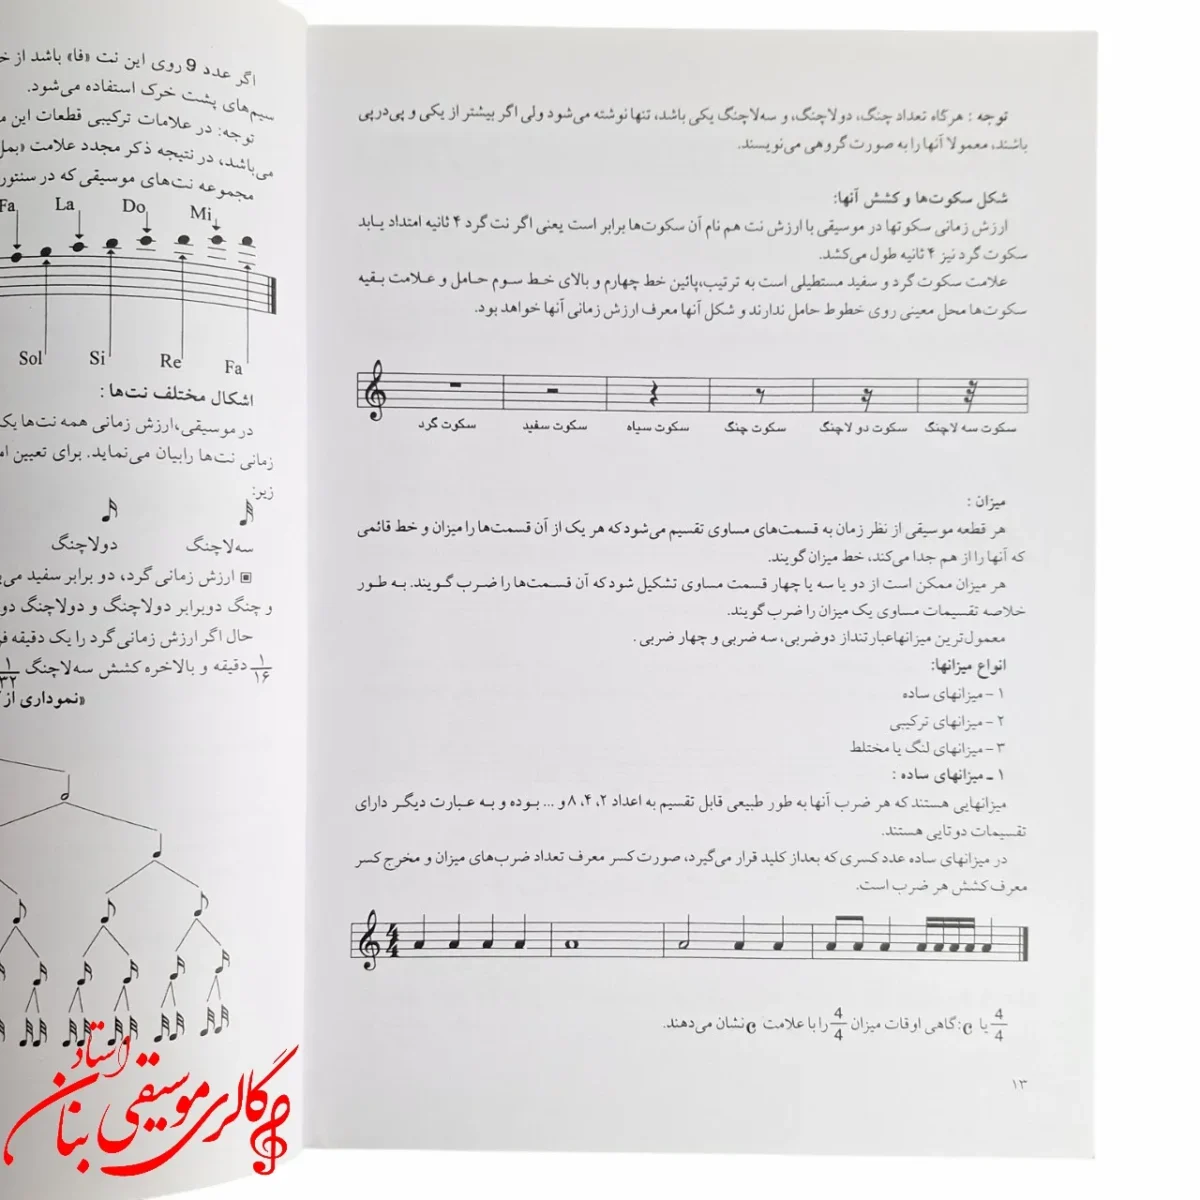 توجه : هرگاه تعداد چنگ، دولاچنگ، و سه‌لاچنگ یکی باشد، تنها نوشته می‌شود ولی اگر بیشتر از یکی و پی‌درپی
باشند، معمولا آنها را به صورت گروهی می‌نویسند.
شکل سکوت‌ها و کشش آنها:
ارزش زمانی سکوتها در موسیقی با ارزش نت هم نام آن سکوت‌ها برابر است یعنی اگر نت گرد ۴ ثانیه امتداد یابد
سکوت گرد نیز ۴ ثانیه طول می‌کشد.
علامت سکوت گرد و سفید مستطیلی است به ترتیب،پائین خط چهارم و بالای خط سوم حامل و علامت بقیه
سکوت‌ها محل معینی روی خطوط حامل ندارند و شکل آنها معرف ارزش زمانی آنها خواهد بود.
سکوت گرد سکوت سفید سکوت سیاه سکوت چنگ سکوت دو لاچنگ سکوت سه لاچنگ
میزان :
هر قطعه موسیقی از نظر زمان به قسمت‌های مساوی تقسیم می‌شود که هر یک از آن قسمت‌ها را میزان و خط قائمی
که آنها را از هم جدا می‌کند، خط میزان گویند.
هر میزان ممکن است از دو یا سه یا چهار قسمت مساوی تشکیل شود که آن قسمت‌ها را ضرب گویند. به طور
خلاصه تقسیمات مساوی یک میزان را ضرب گویند.
معمول‌ترین میزانها عبارتنداز دوضربی، سه ضربی و چهار ضربی .
انواع میزانها:
۱ - میزانهای ساده
۲ - میزانهای ترکیبی
۳ - میزانهای لنگ یا مختلط
۱ ـ میزانهای ساده :
میزانهایی هستند که هر ضرب آنها به طور طبیعی قابل تقسیم به اعداد ۲، ۴، ۸ و ... بوده و به عبارت دیگر دارای
تقسیمات دوتایی هستند.
در میزانهای ساده عدد کسری که بعداز کلید قرار می‌گیرد، صورت کسر معرف تعداد ضرب‌های میزان و مخرج کسر
معرف کشش هر ضرب است.
4/4
4/4 یا C: گاهی اوقات میزان 4/4 را با علامت C نشان می‌دهند.
۱۳
اگر عدد 9 روی این نت «فا» باشد از
سیم‌های پشت خرک استفاده می‌شود.
توجه: در علامات ترکیبی قطعات این
می‌باشد، در نتیجه ذکر مجدد علامت «بمل
مجموعه نت‌های موسیقی که در سنتور
Fa La Do Mi
Sol Si Re Fa
اشکال مختلف نت‌ها :
در موسیقی،ارزش زمانی همه نت‌ها
زمانی نت‌ها رابیان می‌نماید. برای تعیین
زیر:
سه‌لاچنگ دولاچنگ
ارزش زمانی گرد، دو برابر سفید
و چنگ دوبرابر دولاچنگ و دولاچنگ دو
حال اگر ارزش زمانی گرد را یک دقیقه
۱/۱۶ دقیقه و بالاخره کشش سه‌لاچنگ ۱/۳۲
«نموداری از
گالری موسیقی استاد بنان